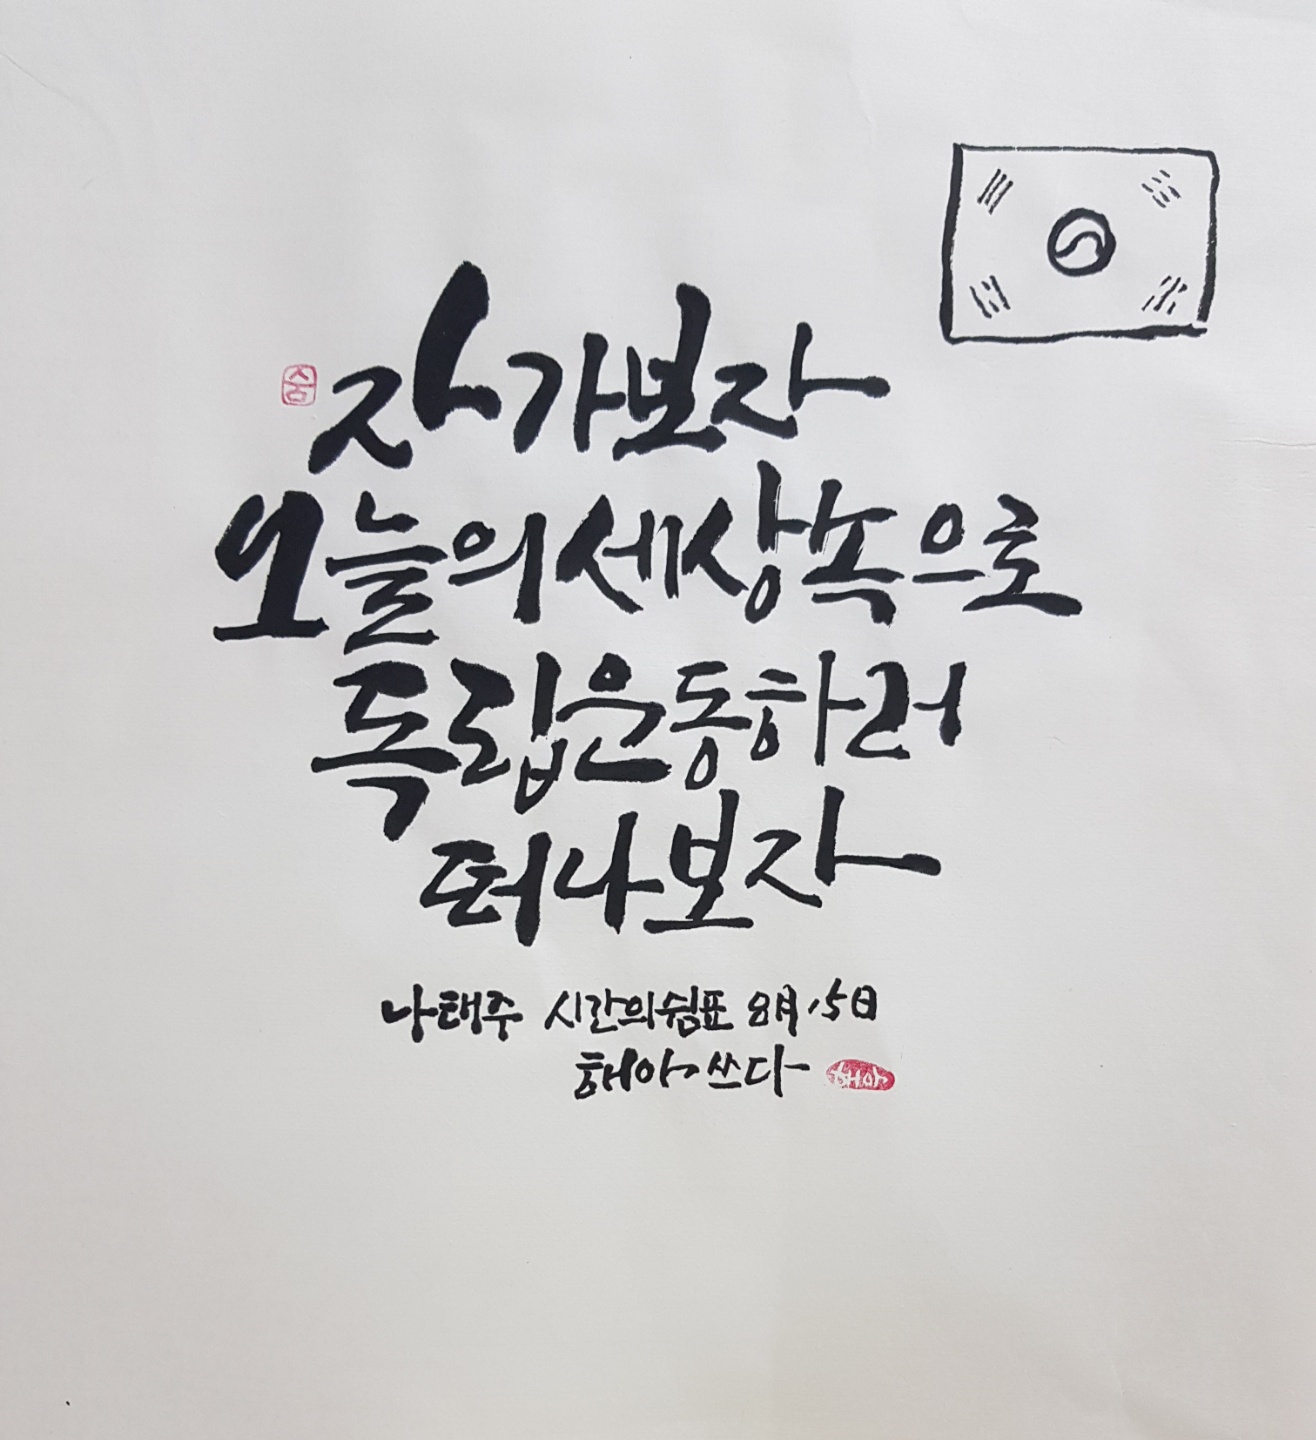 숨
자 가보자
오늘의 세상속으로
독립운동하러
떠나보자
나태주 시간의쉼표 8月 15日
해아 쓰다 해아